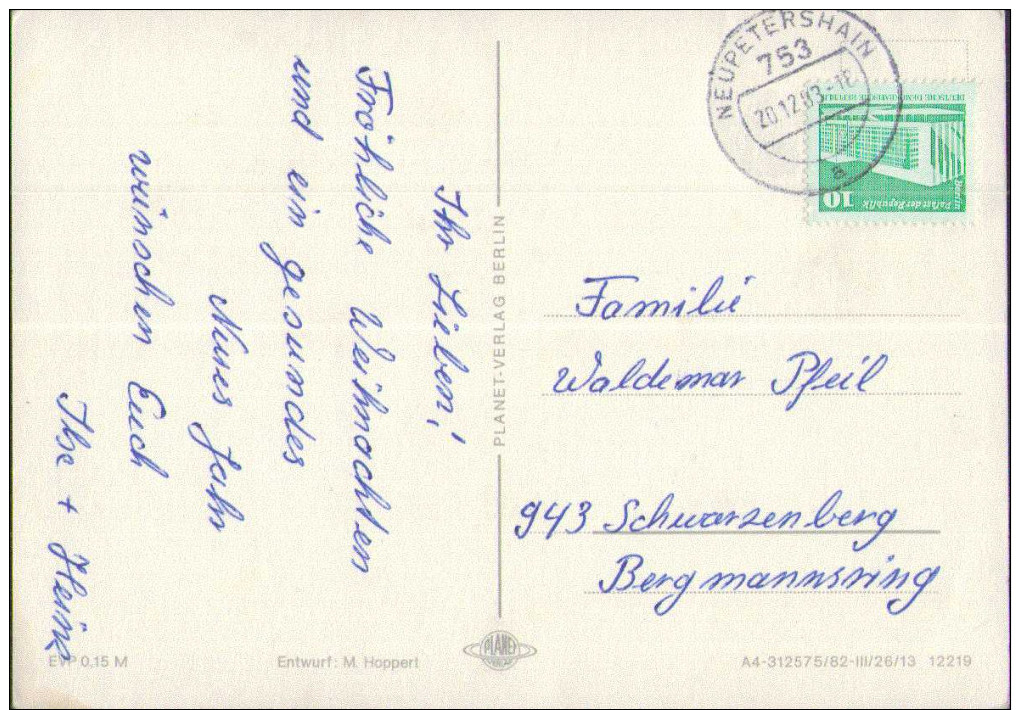 Ihr Lieben!
Fröhliche Weihnachten
und ein gesundes
Neues Jahr
wünschen Euch
Ilse + Heinz
PLANET-VERLAG BERLIN
NEUPETERSHAIN
753
20.12.83-18
a
DEUTSCHE DEMOKRATISCHE REPUBLIK
Berlin
Palast der Republik
10
Familie
Waldemar Pfeil
943 Schwarzenberg
Bergmannsring
EVP 0,15 M
Entwurf: M. Hoppert
PLANET
VERLAG
A4-312575/82-III/26/13 12219